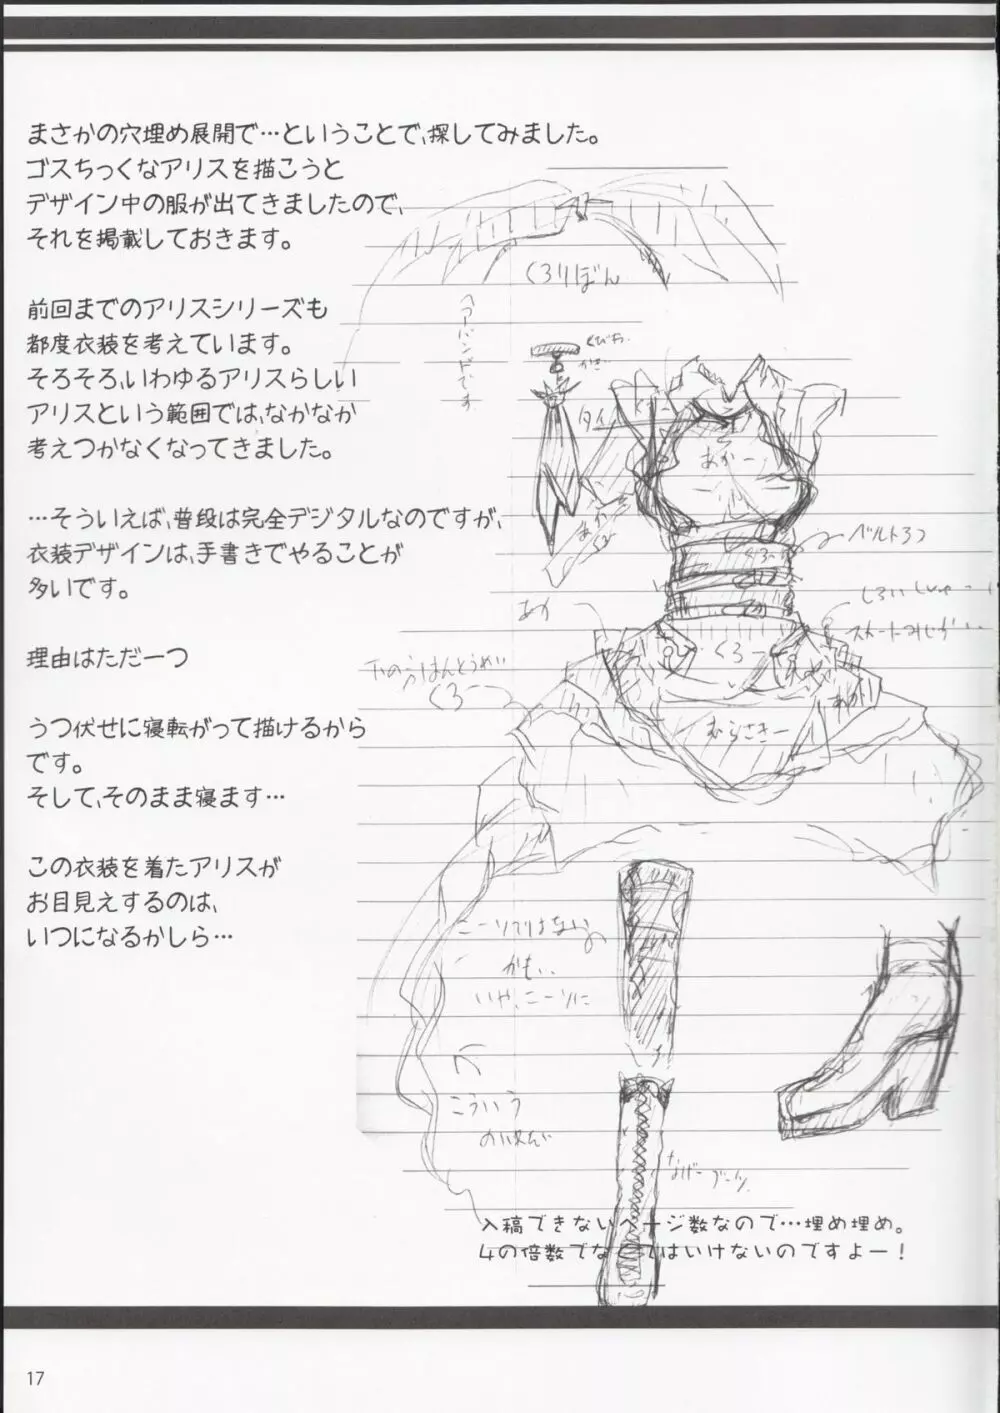 まさかの穴埋め展開で…ということで、探してみました。
ゴスちっくなアリスを描こうと
デザイン中の服が出てきましたので、
それを掲載しておきます。
前回までのアリスシリーズも
都度衣装を考えています。
そろそろ、いわゆるアリスらしい
アリスという範囲では、なかなか
考えつかなくなってきました。
…そういえば、普段は完全デジタルなのですが、
衣装デザインは、手書きでやることが
多いです。
理由はただ一つ
うつ伏せに寝転がって描けるから
です。
そして、そのまま寝ます…
この衣装を着たアリスが
お目見えするのは、
いつになるかしら…
くろりぼん
ヘアーバンドです
タイ
あかー
くろー
ベルト3つ
あか
くろー
むらさきー
くろー
ニーソではない
かも..
いや、ニーソに
こういう
なげーブーツ
入稿できないページ数なので…埋め埋め。
4の倍数でな てはいけないのですよー！
17